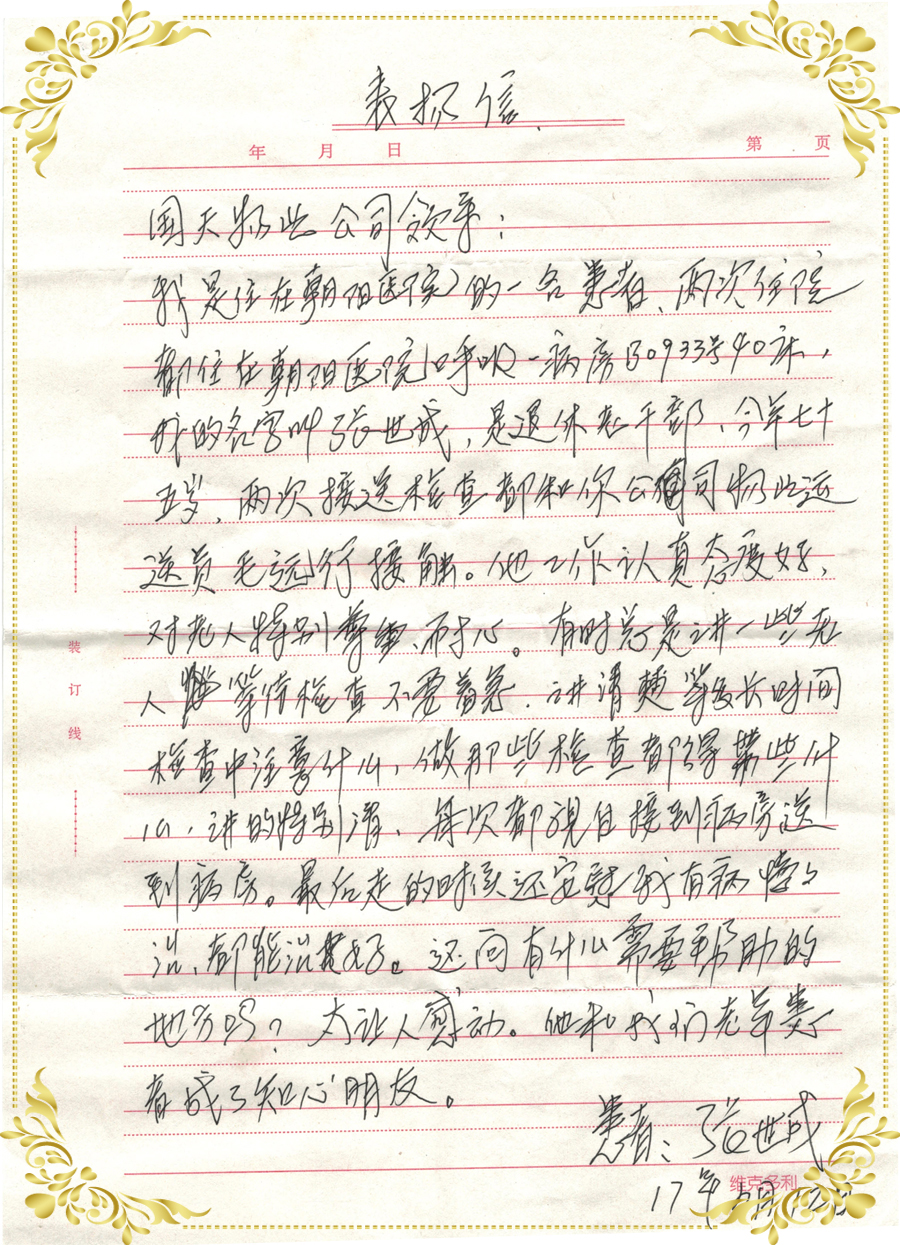 表扬信
年 月 日
第 页
国天物业公司领导：
我是住在朝阳医院的一名患者、两次住院
都住在朝阳医院呼吸一病房B0933号40床，
我的名字叫张世成，是退休老干部、今年七十
五岁，两次接送检查都和你公司物业运
送员毛远行接触。他工作认真态度好，
对老人特别尊重、耐心。有时总是讲一些老
人 等待检查不要着急．讲清楚等多长时间
检查中注意什么，做那些检查都得带些什
么，讲的特别清、每次都亲自接到病房送
到病房。最后走的时候还安慰我有病慢々
治、都能治好。还问有什么需要帮助的
地方吗？太让人感动。他和我们老年患
者成了知心朋友。
患者：张世成
装
订
线
维克多利
17年 月12日